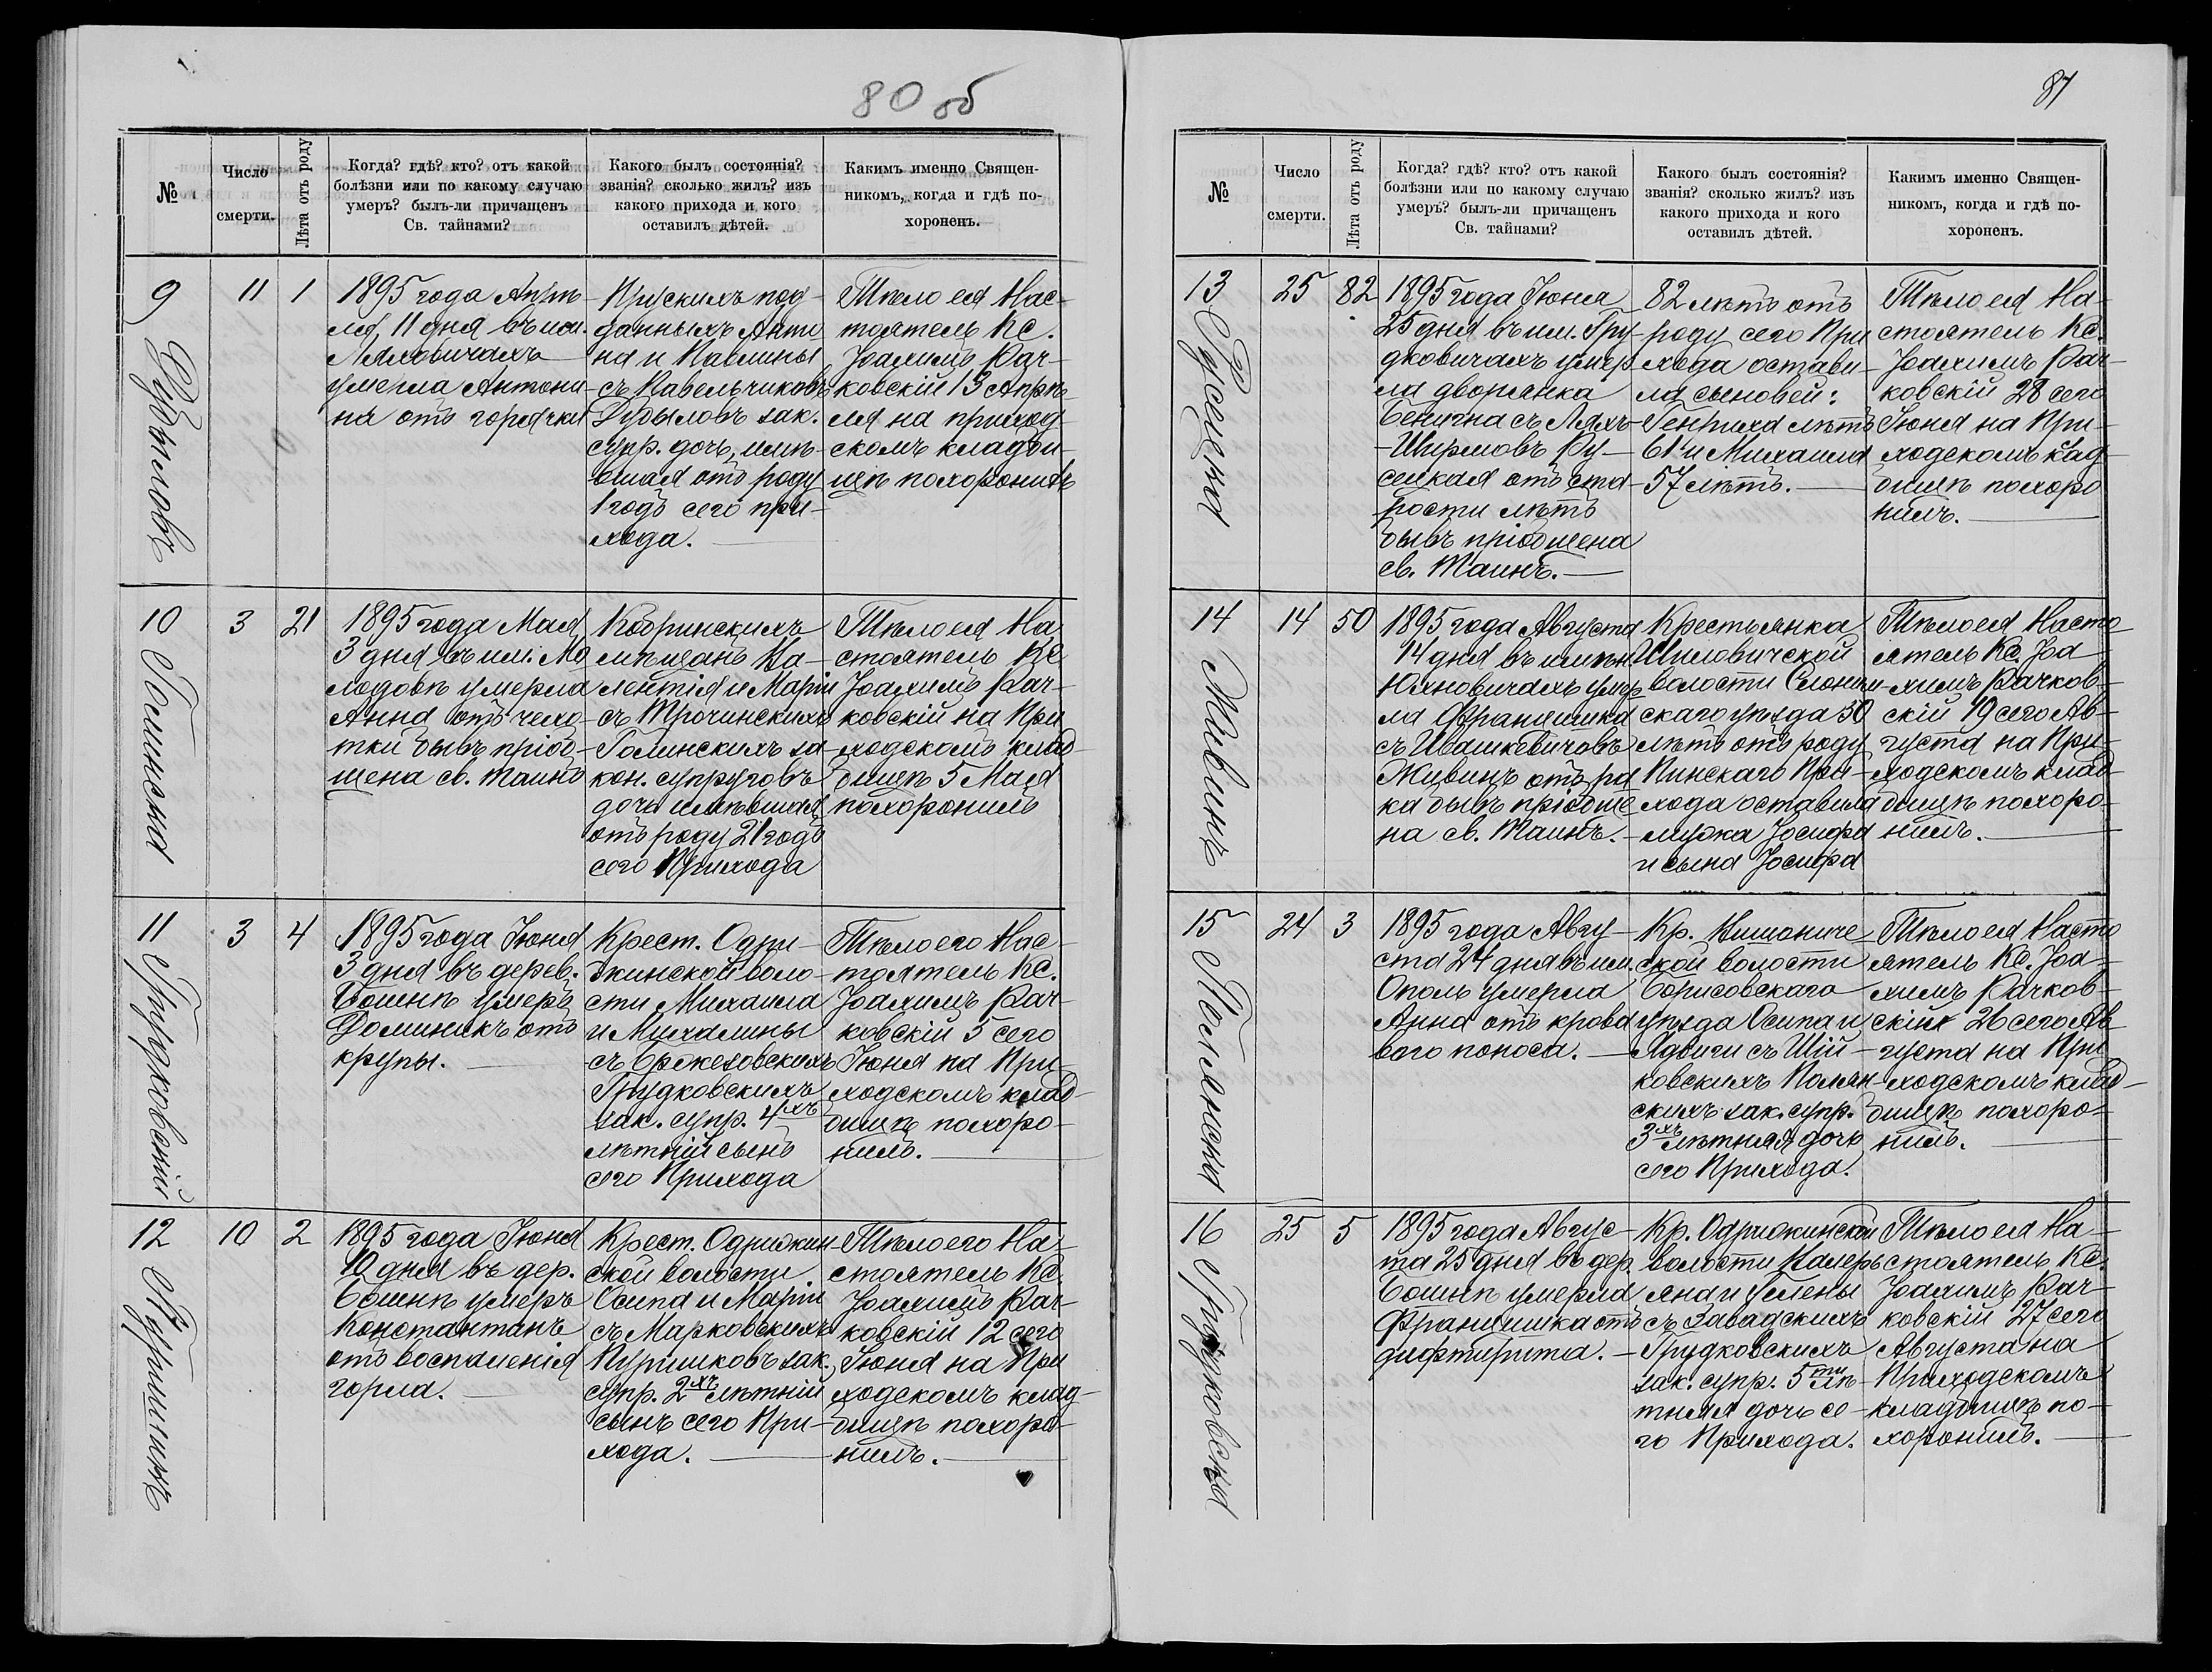 80 об
№
Число смерти.
Лѣта отъ роду
Когда? гдѣ? кто? отъ какой
болѣзни или по какому случаю
умеръ? былъ-ли причащенъ
Св. тайнами?
Какого былъ состоянія?
званія? сколько жилъ? изъ
какого прихода и кого
оставилъ дѣтей.
Какимъ именно Священ-
никомъ, когда и гдѣ по-
хороненъ.
9
11
1
1895 года Апрѣ-
ля, 11 дня въ им.
Ляховичахъ
умерла Антони-
на отъ горячки
Прускихъ под-
данныхъ Анто
на и Павлины
съ Кавельчиковъ
зак.
супр. дочь, имѣ-
вшая отъ роду
1 годъ сего при-
хода.
Тѣло ея Нас-
тоятель Кс.
Іоахимъ Рач-
ковскій 13 Апрѣ-
ля на приход-
скомъ кладби-
щѣ похоронилъ
10
Голинская
3
21
1895 года Мая
3 дня въ им. Мо
лодовѣ умерла
Анна отъ чахо-
тки бывъ пріоб-
щена св. Таинъ
Кобринскихъ
мѣщанъ Ва-
лентія и Маріи
съ Трочинскихъ
Голинскихъ за-
кон. супруговъ
дочь имѣвшая
отъ роду 21 годъ
сего Прихода
Тѣло ея На-
стоятель Кс
Іоахимъ Рач-
ковскій на При
ходскомъ клад-
бищѣ 5 Мая
похоронилъ
11
Грудковскій
3
4
1895 года Іюня
3 дня въ дерев.
умеръ
Доминикъ отъ
крупы.
Крест. Одри-
жинской воло-
сти Михаила
и Михалины
съ Бржезовскихъ
Грудковскихъ
зак. супр. 4хъ
лѣтній сынъ
сего Прихода
Тѣло его Нас-
тоятель Кс.
Іоахимъ Рач-
ковскій 5 сего
Іюня на При-
ходскомъ клад-
бищѣ похоро-
нилъ.
12
10
2
1895 года Іюня
10 дня въ дер.
умеръ
Константанъ
отъ воспаленія
горла.
Крест. Одрижин-
ской волости
Осипа и Маріи
съ Марковскихъ
зак.
супр. 2хъ лѣтній
сынъ сего При-
хода.
Тѣло его На-
стоятель Кс.
Іоахимъ Рач-
ковскій 12 сего
Іюня на При
ходскомъ клад-
бищѣ похоро-
нилъ.
81
№
Число смерти.
Лѣта отъ роду
Когда? гдѣ? кто? отъ какой
болѣзни или по какому случаю
умеръ? былъ-ли причащенъ
Св. тайнами?
Какого былъ состоянія?
званія? сколько жилъ? изъ
какого прихода и кого
оставилъ дѣтей.
Какимъ именно Священ-
никомъ, когда и гдѣ по-
хороненъ.
13
Русецкая
25
82
1895 года Іюня
25 дня въ им. Гру-
дковичахъ умер-
ла дворянка
Бенигна съ Ляхъ-
-Ширмовъ Ру-
сецкая отъ ста-
рости лѣтъ
бывъ пріобщена
св. Таинъ.
82 лѣтъ отъ
роду сего При
хода остави-
ла сыновей:
Генриха лѣтъ
61 и Михаила
57 лѣтъ.
Тѣло ея На-
стоятель Кс.
Іоахимъ Рач-
ковскій 28 сего
Іюня на При-
ходскомъ клад-
бищѣ похоро
нилъ.
14
Живинъ
14
50
1895 года Августа
14 дня въ имѣн.
Юхновичахъ умер
ла Францишка
съ Ивашкевичовъ
Живинъ отъ ра
ка бывъ пріобще
на св. Таинъ.
Крестьянка
волости Слоним-
скаго уѣзда 50
лѣтъ отъ роду
Пинскаго При-
хода оставила
мужа Іосифа
и сына Іосифа
Тѣло ея Насто
ятель Кс. Іоа-
химъ Рачков-
скій 19 сего Ав-
густа на При-
ходскомъ клад-
бищѣ похоро-
нилъ.
15
Полянская
24
3
1895 года Авгу-
ста 24 дня въ им.
Ополь умерла
Анна отъ крова
ваго поноса.
Кр.
ской волости
Борисовскаго
уѣзда Осипа и
Ядвиги съ Шій-
ковскихъ Полян-
скихъ зак. супр.
3хъ лѣтняя дочь
сего Прихода.
Тѣло ея Насто
ятель Кс. Іоа-
химъ Рачков-
скій 26 сего Ав
густа на При
ходскомъ клад-
бищѣ похоро-
нилъ.
16
Грудковская
25
5
1895 года Авгус-
та 25 дня въ дер.
умерла
Францишка отъ
дифтирита.
Кр. Одрижинской
волости Валерь
яна и Елены
съ Завадскихъ
Грудковскихъ
зак. супр. 5ти лѣ-
тняя дочь се-
го Прихода.
Тѣло ея На-
стоятель Кс.
Іоахимъ Рач-
ковскій 27 сего
Августа на
Приходскомъ
кладбищѣ по-
хоронилъ.